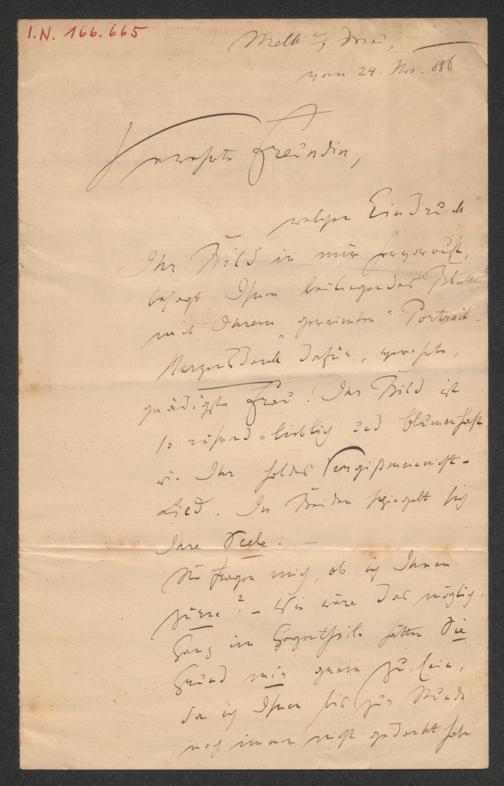 I.N. 166.665
Melk a/d Donau,
vom 24. Nov. 886
Verehrte Freundin,
welchen Eindruck
Ihr Bild in mir hervorruft,
besagt Ihnen beiliegendes Blatt
mit Ihrem „gereimten“ Portrait.
Herzensdank dafür, verehrte,
gnädigste Frau! Das Bild ist
so rührend-lieblich und blumenhaft
wie Ihr holdes Vergißmeinnicht-
Lied. In Beiden spiegelt sich
Ihre Seele. —
Sie fragen mich, ob ich Ihnen
zürne? – Wie wäre das möglich.
Ganz im Gegentheile hätten Sie
Grund mir gram zu sein,
da ich Ihnen bis zur Stunde
noch immer nicht gedankt habe